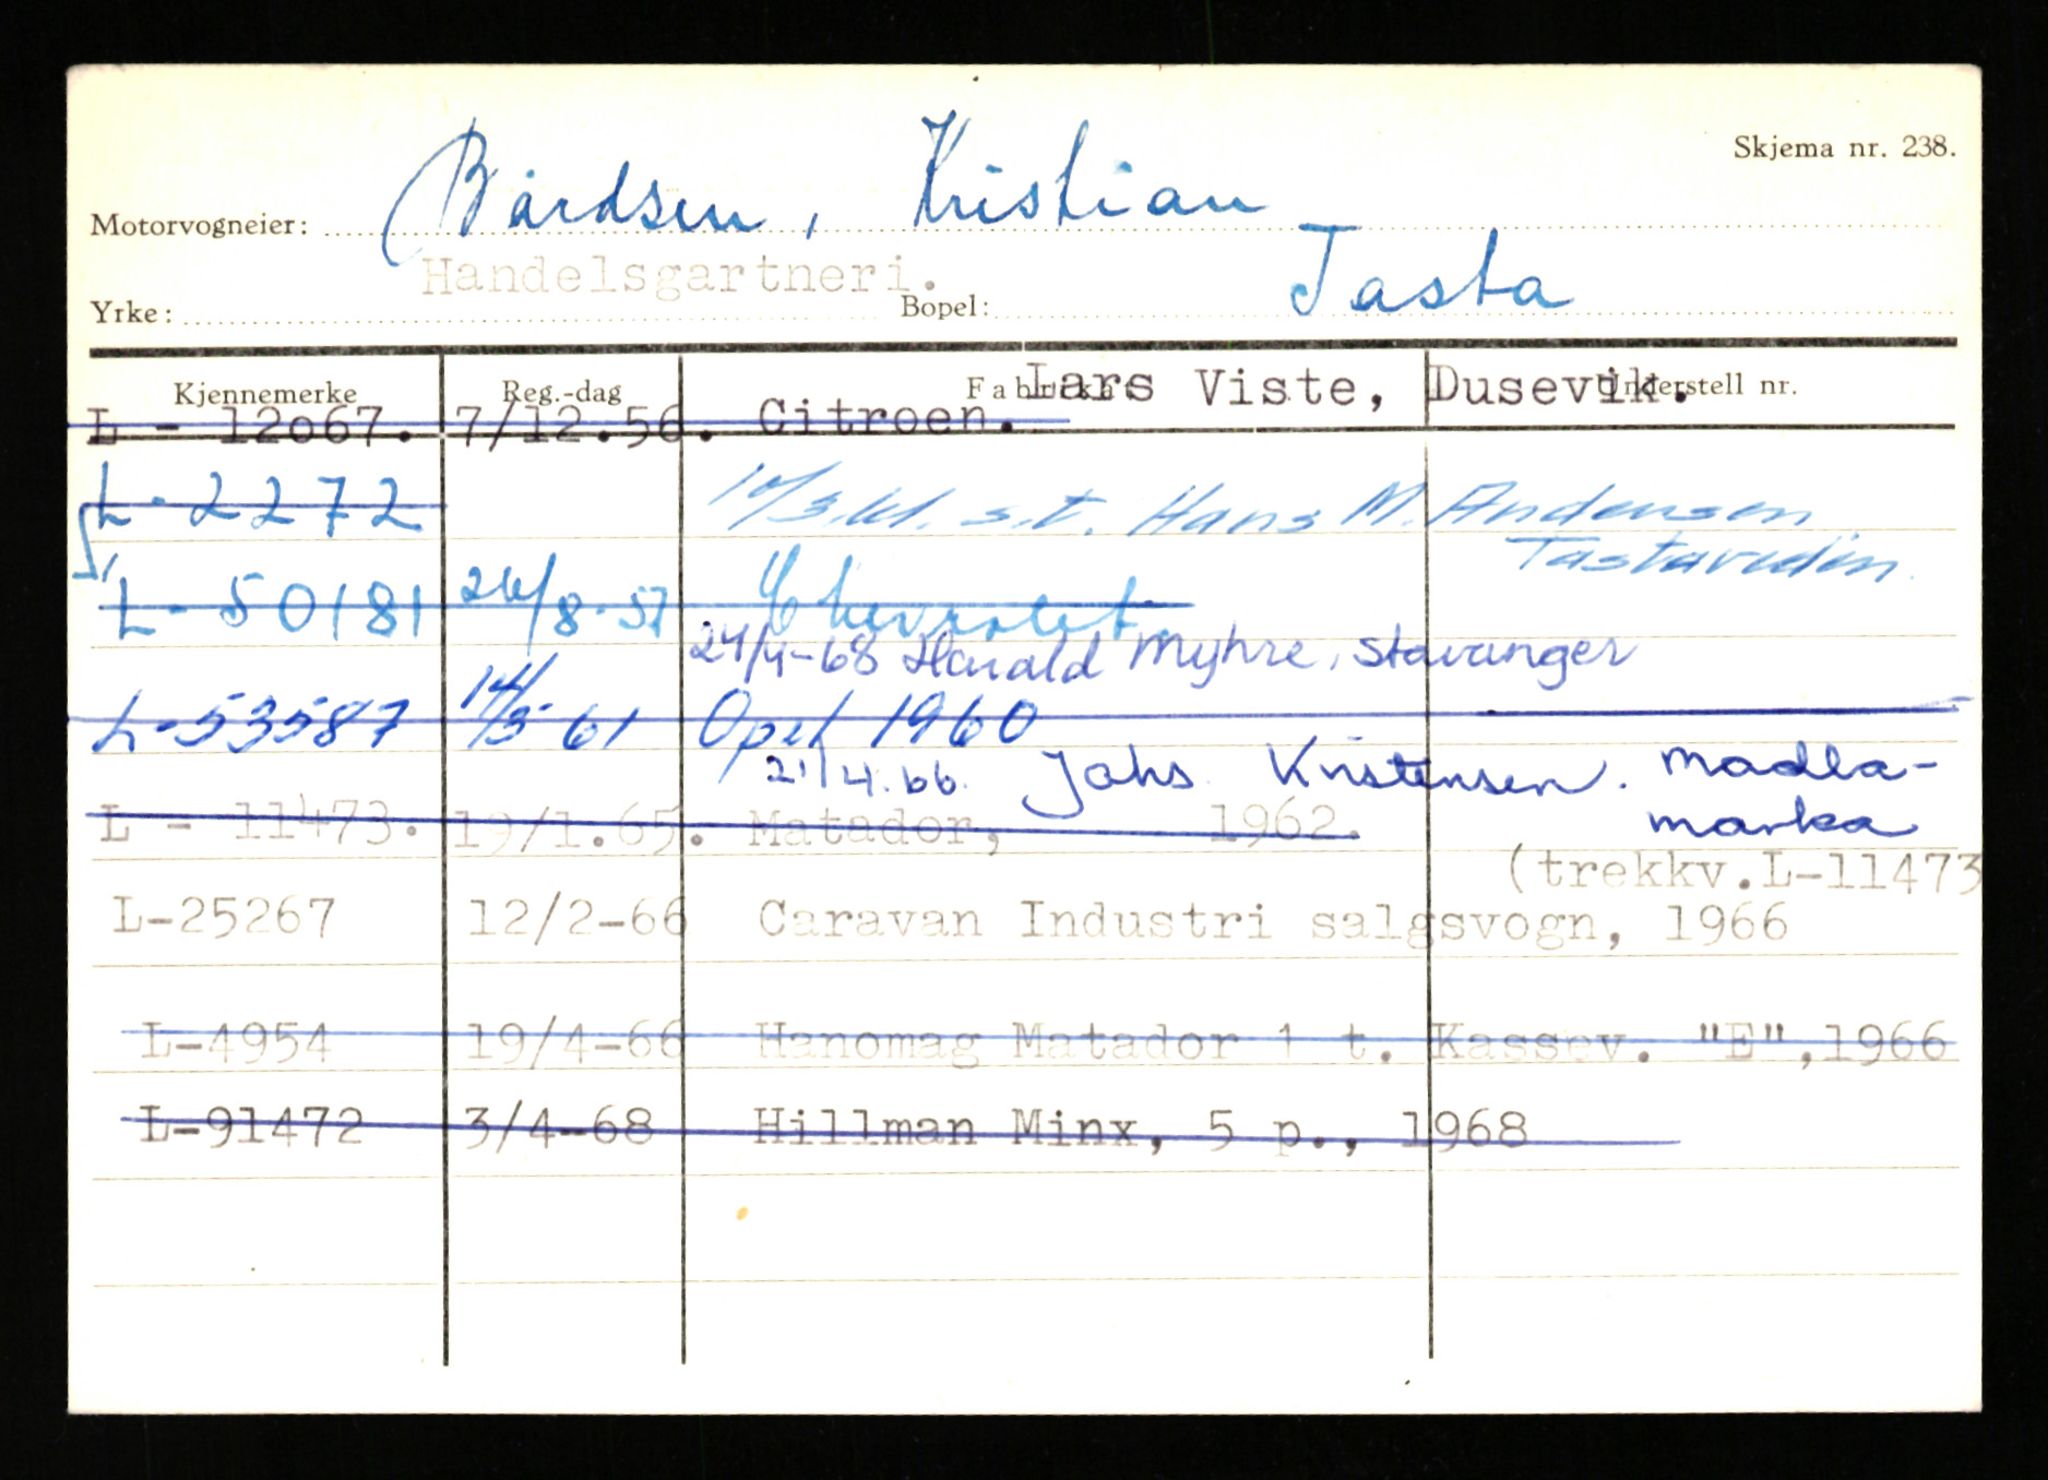 Skjema nr. 238.
Motorvogneier: Bårdsen, Kristian
Handelsgartneri.
Yrke: Bopel: Tasta
Kjennemerke Reg.-dag Fabrikat Lars Viste, Dusevik. Understell nr.
L - 12o67. 7/12.56. Citroen.
L - 2272 14/3. kl. s.t. Hans M. Andensen
Tastaveden
L - 50181 26/8-57 Chevrolet
24/4-68 Harald Myhre, Stavanger
L-53587 14/5-61 Opel 1960
21/4.66. Johs Kristensen. Madla-
marka
L - 11473. 19/1.65. Matador, 1962.
(trekkv.L-11473
L-25267 12/2-66 Caravan Industri salgsvogn, 1966
L-4954 19/4-66 Hanomag Matador 1 t. Kassev. "E",1966
L-91472 3/4-68 Hillman Minx, 5 p., 1968